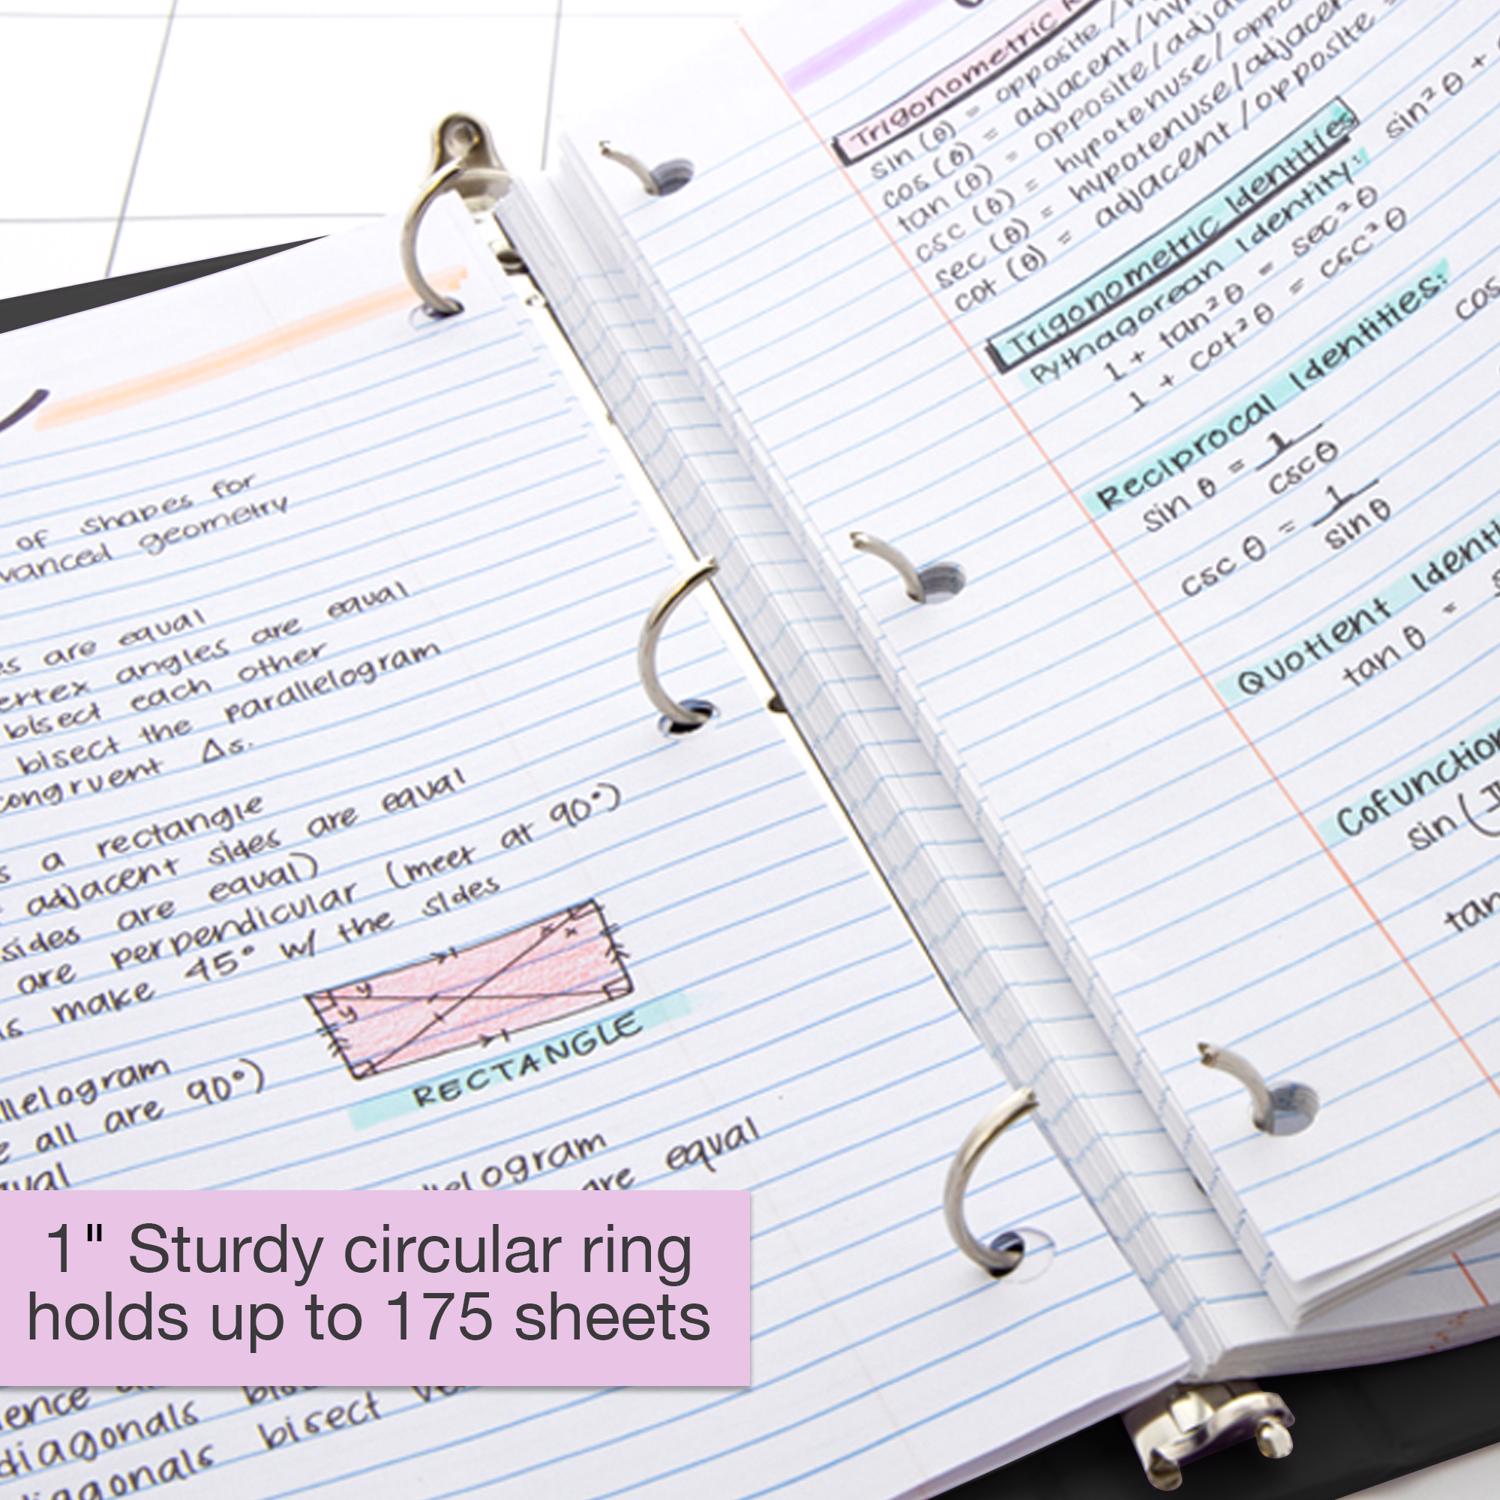 of shapes for
vanced geometry
are equal
vertex angles are equal
bisect each other
bisect the parallelogram
congruent Δs.
a rectangle
adjacent sides are equal
sides are equal)
are perpendicular (meet at 90°)
make 45° w/ the sides
RECTANGLE
all are 90°)
are equal
1" Sturdy circular ring
holds up to 175 sheets
diagonals
diagonals bisect
Trigonometric
sin (θ) = opposite /
cos (θ) = adjacent/hy
tan (θ) = opposite/adja
csc (θ) = hypotenuse/oppo
sec (θ) = hypotenuse/adjacen
cot (θ) = adjacent/opposite
Trigonometric Identities
Pythagorean Identity: sin²θ +
1 + tan²θ = sec²θ
1 + cot²θ = csc²θ
Reciprocal Identities: cos
sin θ = 1/cscθ
csc θ = 1/sinθ
Quotient Identi
tan θ =
Cofunction
sin (
tan